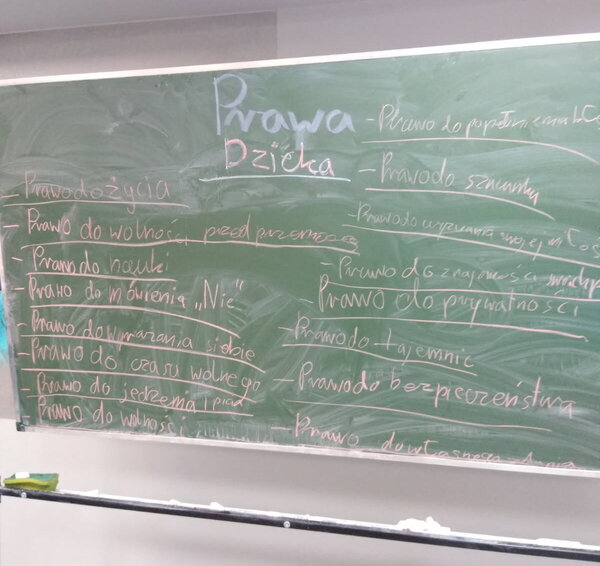 Prawa
Dzicka
- Prawo do życia
- Prawo do wolności przed przemocą
- Prawo do nauki
- Prawo do mówienia „Nie"
- Prawo do wyrażania siebie
- Prawo do czasu wolnego
- Prawo do jedzenia i picia
- Prawo do wolności
- Prawo do popełniania
- Prawo do szacunku
- Prawo do wyznania swojej
- Prawo do znajomości swoich
- Prawo do prywatności
- Prawo do tajemnic
- Prawo do bezpieczeństwa
- Prawo do własnego